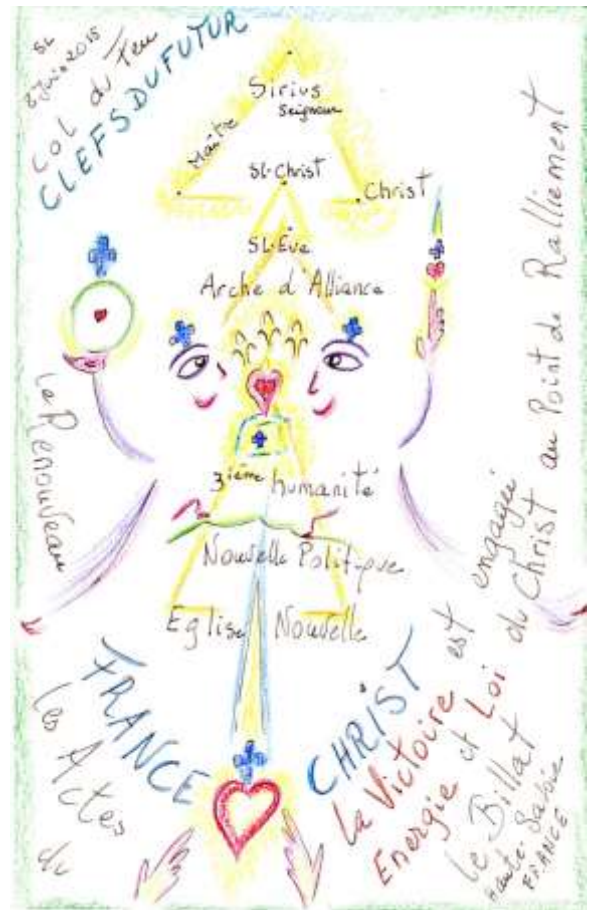 SL
8 Juin 2015
Col du Feu
CLEFSDUFUTUR
Sirius
Seigneur
Maître
SL-Christ
Christ
SL-Eve
Arche d'Alliance
Le Renouveau
3ième humanité
Nouvelle Politique
Eglise Nouvelle
FRANCE
CHRIST
Les Actes
du
La Victoire est engagée
Energie et Loi du Christ au Point de Ralliement
Le Billat
Haute-Savoie
FRANCE